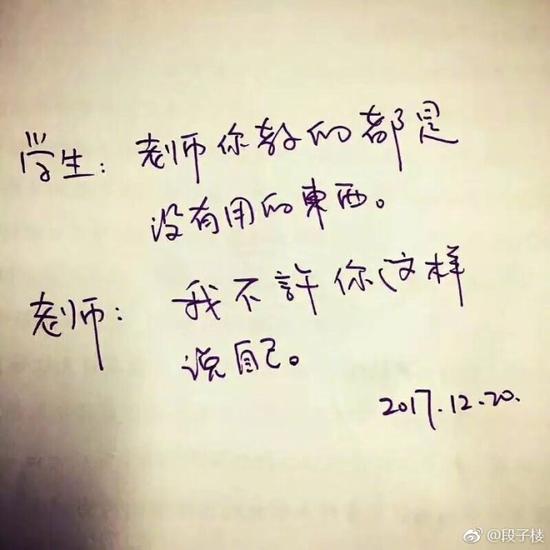 学生：老师你教的都是
没有用的東西。
老师：我不許你这样
说自己。
2017.12.20.
@段子楼